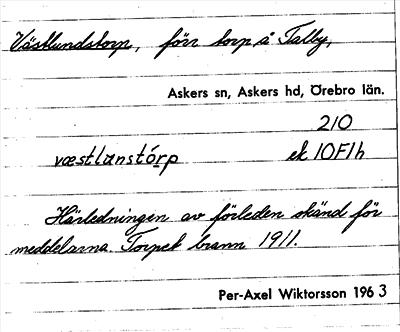 Västlundstorp, förr torp å Tallby,
Askers sn, Askers hd, Örebro län.
210
væstlanstórp ek 10F1h
Härledningen av förleden okänd för
meddelarna. Torpet brann 1911.
Per-Axel Wiktorsson 1963